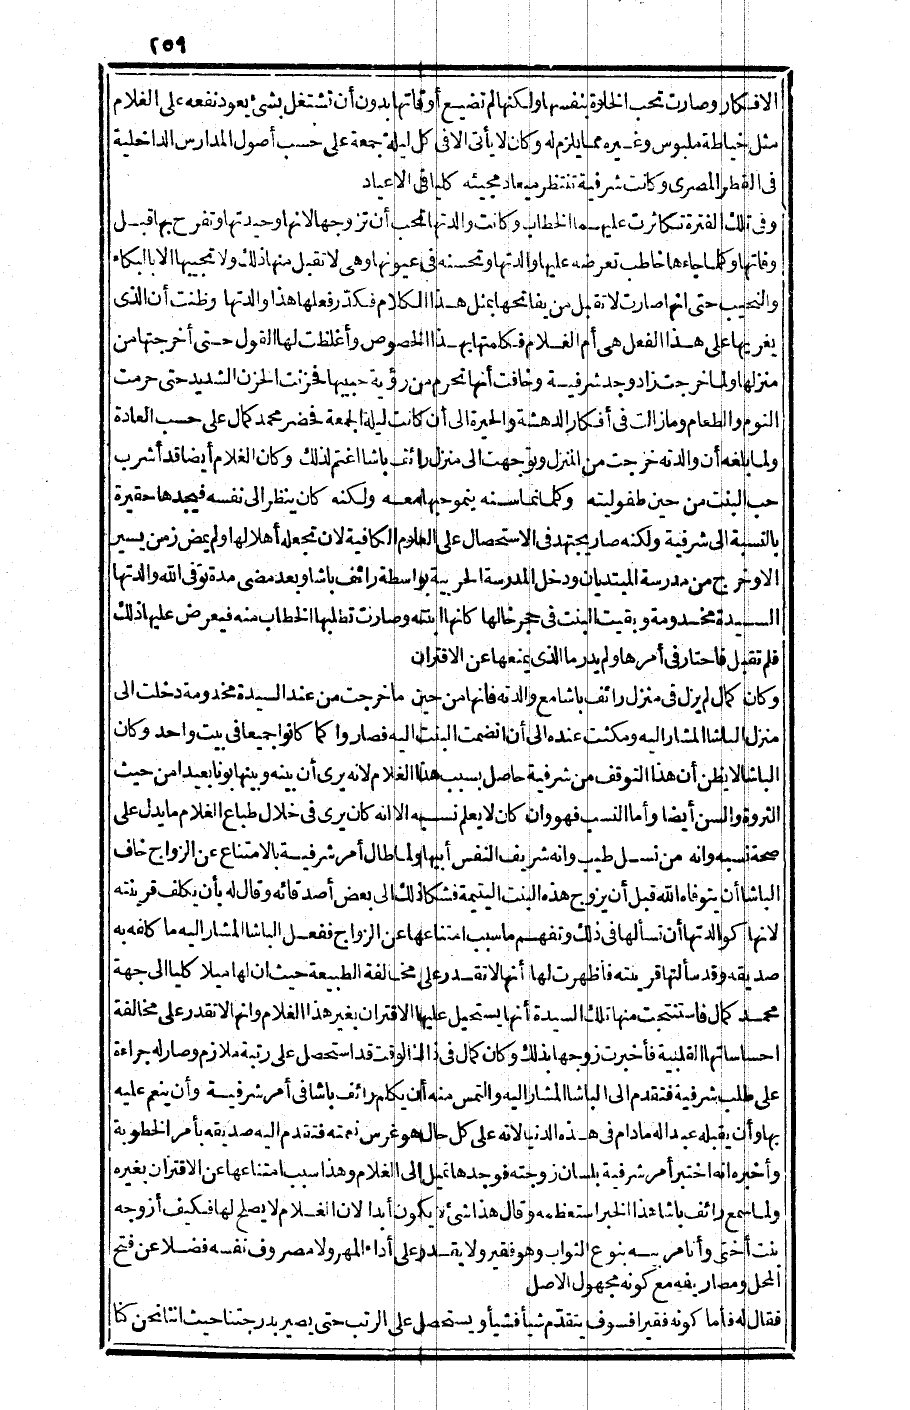 ٢٥٩
الافكار وصارت تحب الخلاوة بنفسها ولكنها لم تضيع أوقاتها بدون أن تشتغل بشئ يعود نفعه على الغلام
مثل خياطة ملبوس وغيره مما يلزم له وكان لا يأتى الا فى كل ليلة جمعة على حسب أصول المدارس الداخلية
فى القطر المصرى وكانت شرفية تنتظر ميعاد مجيئه كليا فى الاعياد
وفى تلك الفترة تكاثرت عليهما الخطاب وكانت والدتها تحب أن تزوجها لانها وحيدتها وتفرح بها قبل
وفاتها وكلما جاءها خاطب تعرضه عليها والدتها وتحسنه فى عيونها وهى لا تقبل منها ذلك ولا تجيبها الا بالبكاء
والنحيب حتى انها صارت لا تقبل من يفاتحها بمثل هذا الكلام فكدر فعلها هذا والدتها وظنت أن الذى
يغريها على هذا الفعل هى أم الغلام فكلمتها بهذا الخصوص وأغلظت لها القول حتى أخرجتها من
منزلها ولما خرجت زاد وجد شرفية وخافت أنها تحرم من رؤية حبيبها فحزنت الحزن الشديد حتى حرمت
النوم والطعام وما زالت فى أفكار الدهشة والحيرة الى أن كانت ليلة الجمعة فحضر محمد كمال على حسب العادة
ولما بلغه أن والدته خرجت من المنزل وتوجهت الى منزل رائف باشا اغتم لذلك وكان الغلام أيضا قد أشرب
حب البنت من حين طفوليته وكلما نما سنه ينمو حبها معه ولكنه كان ينظر الى نفسه فيجدها حقيرة
بالنسبة الى شرفية ولكنه صار يجتهد فى الاستحصال على العلوم الكافية لان تجعله أهلا لها ولم يمض زمن يسير
الا وخرج من مدرسة المبتديان ودخل المدرسة الحربية بواسطة رائف باشا وبعد مضى مدة توفى الله والدتها
السيدة مخدومة وبقيت البنت فى حجر خالها كانها ابنته وصارت تطلبها الخطاب منه فيعرض عليها ذلك
فلم تقبل فاحتار فى أمرها ولم يدر ما الذى يمنعها عن الاقتران
وكان كمال لم يزل فى منزل رائف باشا مع والدته فانها من حين ما خرجت من عند السيدة مخدومة دخلت الى
منزل الباشا المشار اليه ومكثت عنده الى أن انضمت البنت اليه فصاروا كما كانوا جميعا فى بيت واحد وكان
الباشا لا يظن أن هذا التوقف من شرفية حاصل بسبب هذا الغلام لانه يرى أن بينه وبينها بونا بعيدا من حيث
الثروة والسن أيضا وأما النسب فهو وان كان لا يعلم نسبه الا انه كان يرى فى خلال طباع الغلام ما يدل على
صحة نسبه وانه من نسل طيب وانه شريف النفس أبيها ولما طال أمر شرفية بالامتناع عن الزواج خاف
الباشا أن يتوفاه الله قبل أن يزوج هذه البنت اليتيمة فشكا ذلك الى بعض أصدقائه وقال له بأن يكلف قرينته
لانها كوالدتها أن تسألها فى ذلك وتفهم ما سبب امتناعها عن الزواج ففعل الباشا المشار اليه ما كلفه به
صديقه وقد سألتها قرينته فأظهرت لها أنها لا تقدر على مخالفة الطبيعة حيث ان لها ميلا كليا الى جهة
محمد كمال فاستنتجت منها تلك السيدة أنها يستحيل عليها الاقتران بغير هذا الغلام وانها لا تقدر على مخالفة
احساساتها القلبية فأخبرت زوجها بذلك وكان كمال فى ذلك الوقت قد استحصل على رتبة ملازم وصار له جراءة
على طلب شرفية فتقدم الى الباشا المشار اليه والتمس منه أن يكلم رائف باشا فى أمر شرفية وأن ينعم عليه
بها وأن يقبله عبدا له مادام فى هذه الدنيا لانه على كل حال هو غرس نعمته فتقدم اليه صديقه بأمر الخطوبة
وأخبره انه اختبر أمر شرفية بلسان زوجته فوجدها تميل الى الغلام وهذا سبب امتناعها عن الاقتران بغيره
ولما سمع رائف باشا هذا الخبر استعظمه وقال هذا شئ لا يكون أبدا لان الغلام لا يصلح لها فكيف أزوجه
بنت أختى وأنا مربيه بنوع الثواب وهو فقير ولا يقدر على أداء المهر ولا مصروف نفسه فضلا عن فتح
المحل ومصاريفه مع كونه مجهول الاصل
فقال له فأما كونه فقيرا فسوف يتقدم شيأ فشيأ ويستحصل على الرتب حتى يصير بدرجتنا حيث اننا نحن كنا